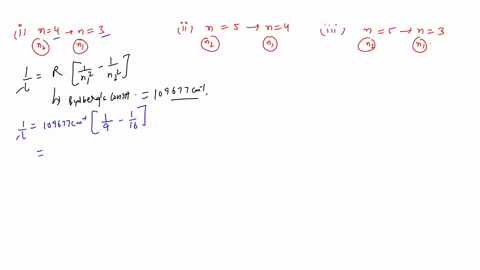 (i) n=4 → n=3 (ii) n = 5 → n=4 (iii) n=5 → n=3
n₂ n₁ n₂ n₁ n₂ n₁
1/λ = R [1/n₁² - 1/n₂²]
↳ Rydberg's const. = 109677 cm⁻¹.
1/λ = 109677 cm⁻¹ [1/9 - 1/16]
=